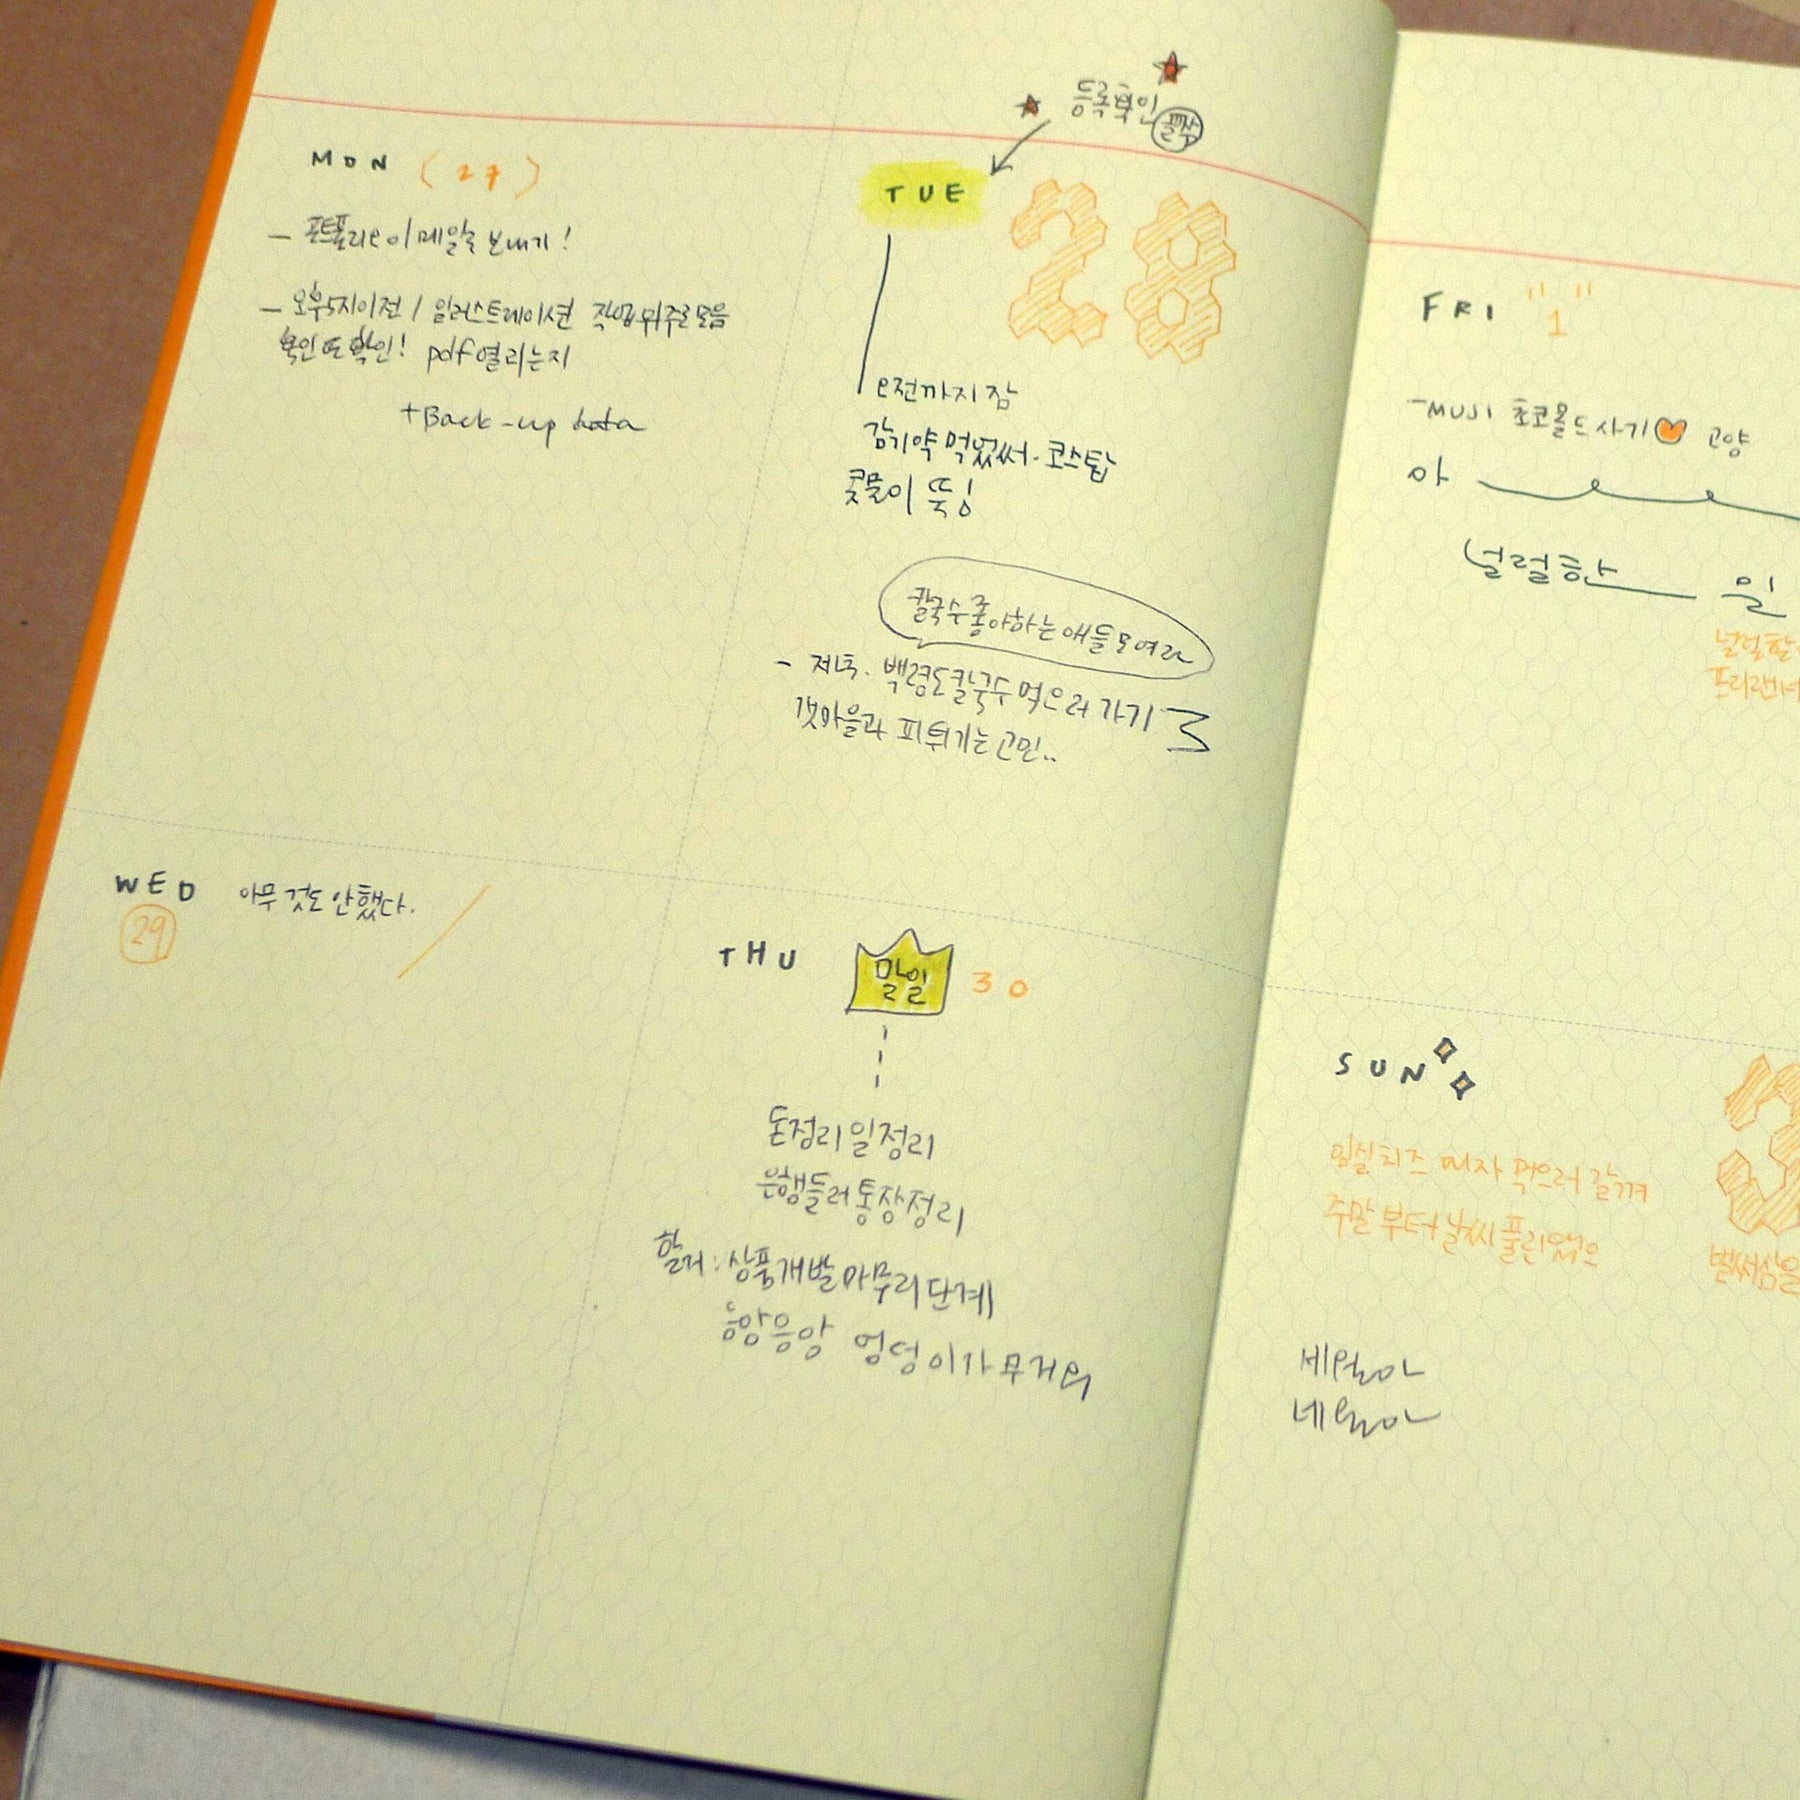 등록확인
MON (27)
- 포트폴리오 이메일로 보내기!
- 오후5시이전 / 일러스트레이션 작업위주로모음
확인또확인! pdf열리는지
+Back-up data
TUE 28
오전까지 잠
감기약 먹었써. 코스탑
콧물이 뚝!
칼국수좋아하는애들모여라
- 저녁. 백령도칼국수 먹으러 가기
갯마을과 피튀기는고민..
WED 아무것도 안했다.
29
THU 말일 30
돈정리 일정리
은행들러통장정리
할거: 상품개발마무리단계
응앙응앙 엉덩이가 무거워
FRI "1"
-MUJI 초코몰드사기 고양
아
널럴한 일
널럴한
프리랜서
SUN 3
임실치즈 피자 먹으러 갈꺼
주말부터 날씨 풀린댔으
벌써삼월
세월아
네월아